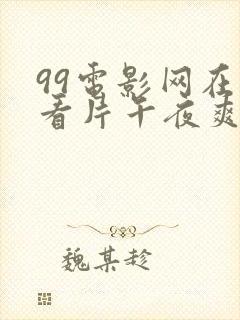 99电影网在
看片午夜爽
魏某趁